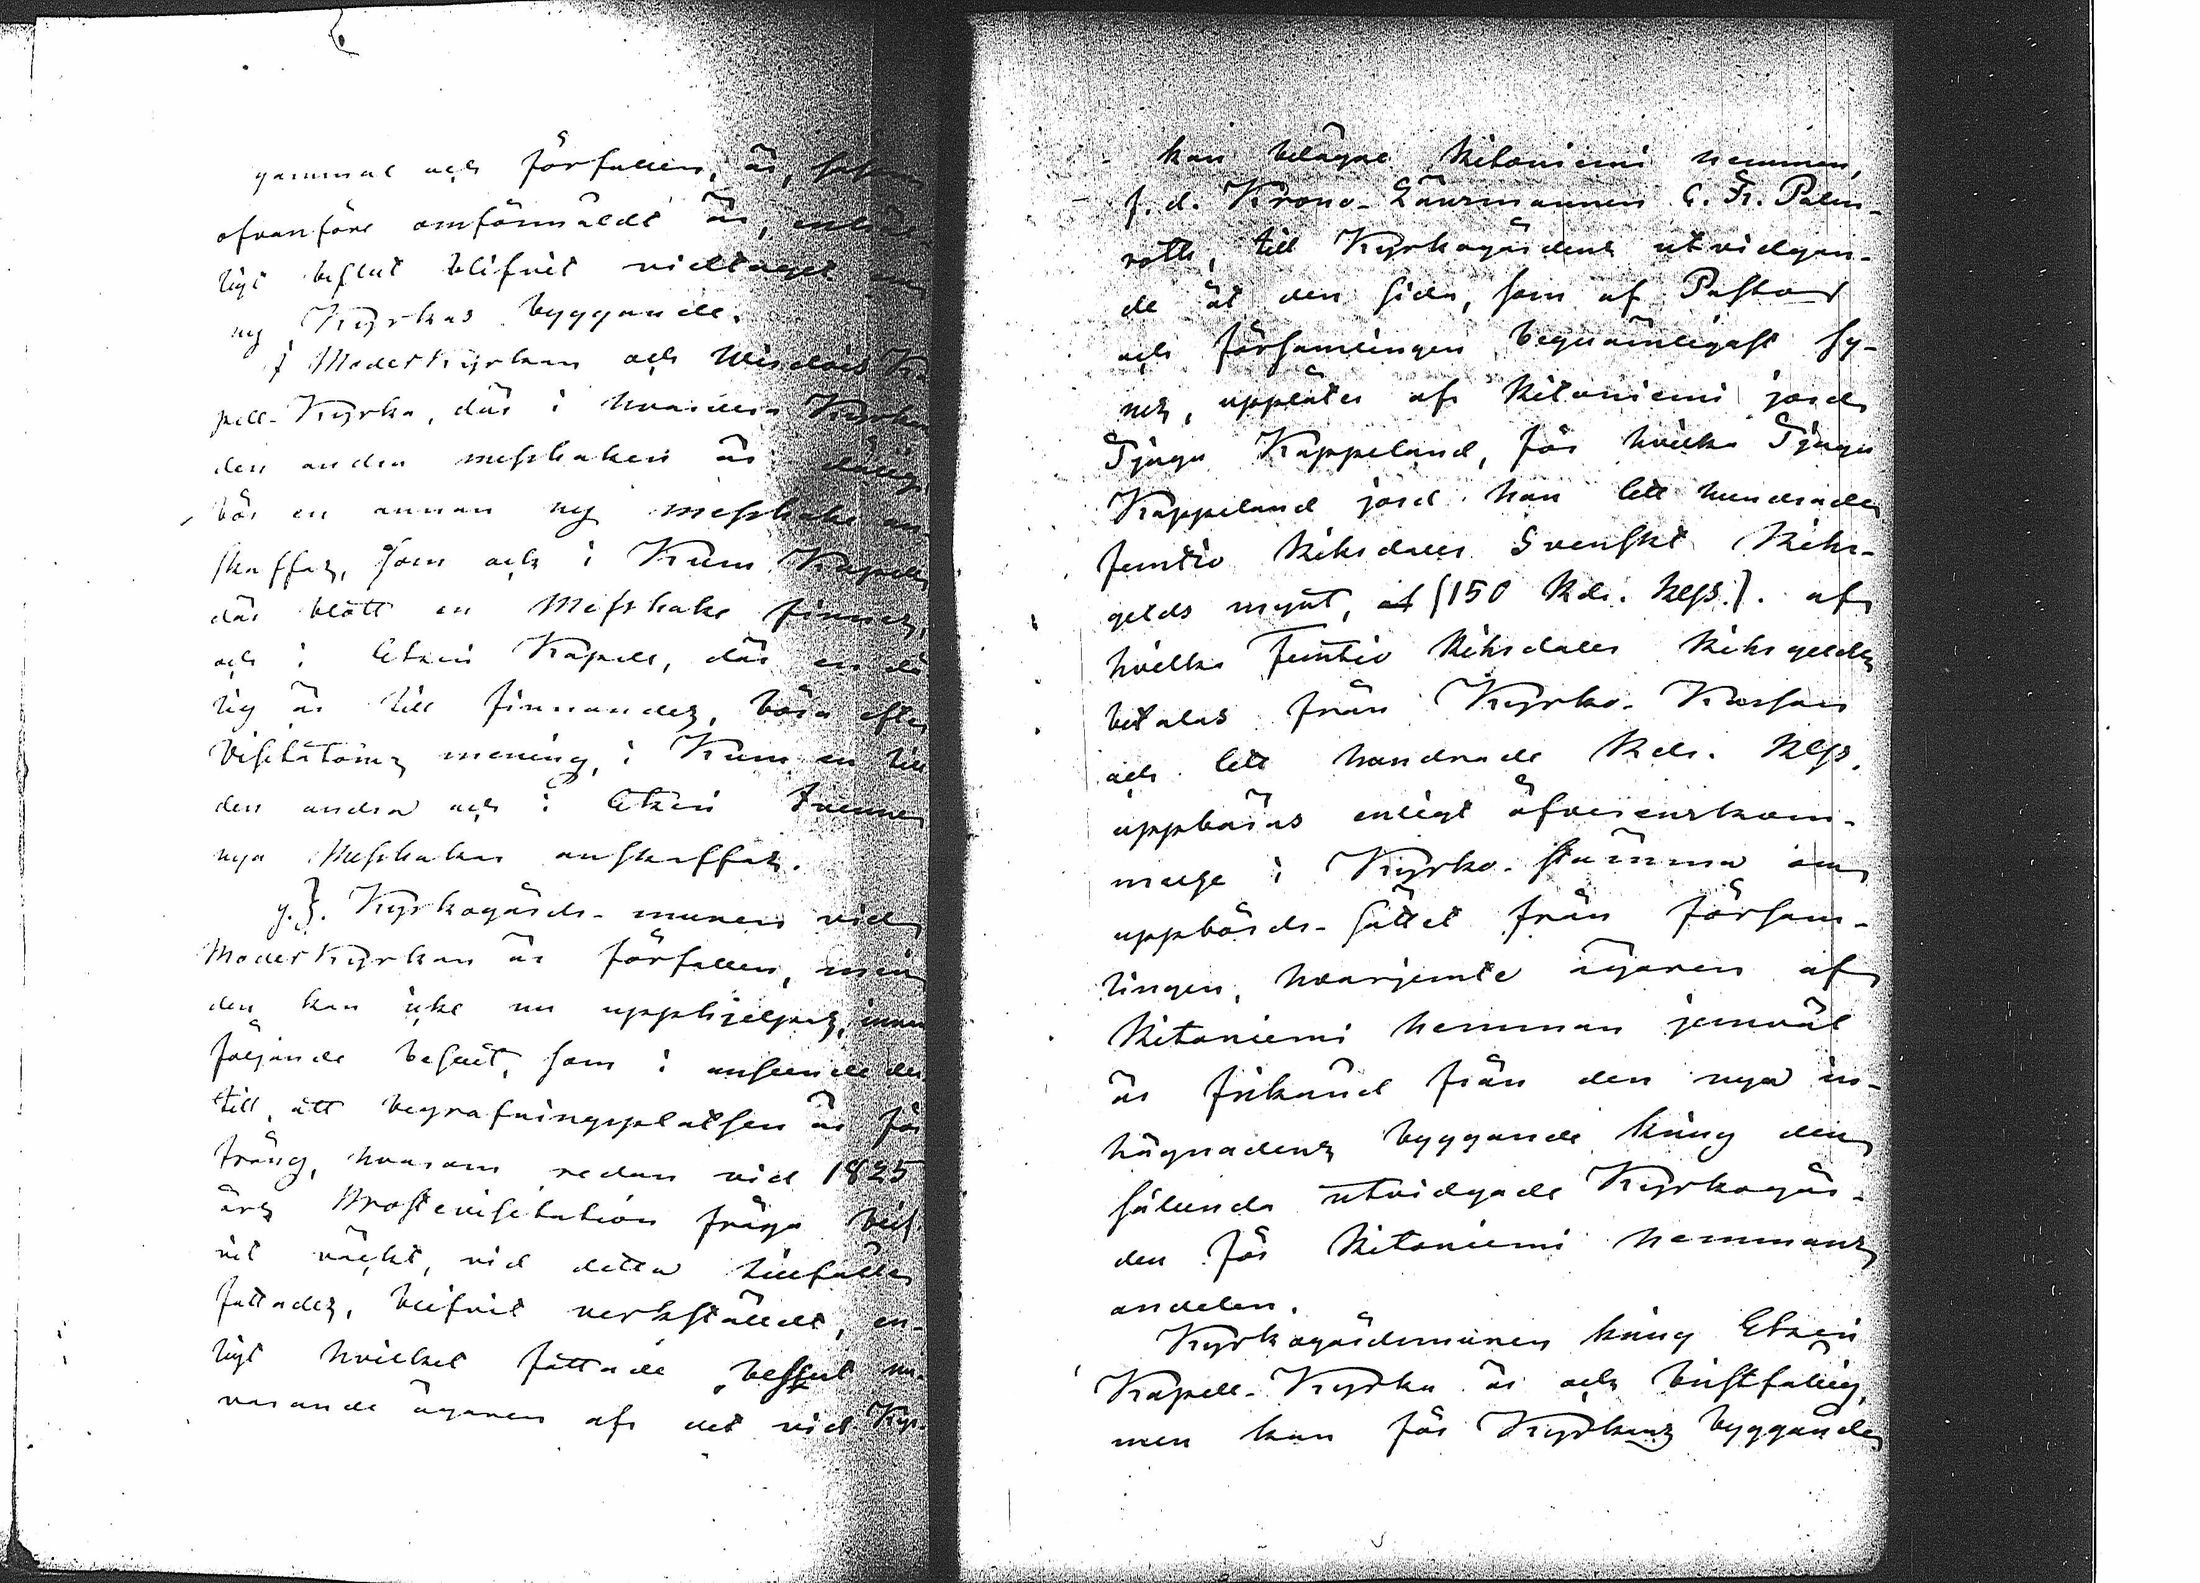 gammal och förfallen, är, som
ofvanföre omförmäldt är, enhäl-
ligt beslut blifvit vidtaget om
ny Kyrkas byggande.
I ModerKyrkan och Ka-
pell-Kyrka, där i hvardera Kyrkan
den andra messhaken är dålig,
bör en annan ny messhake an-
skaffas, som ock i Kumo Kapell,
där blott en Messhake finnes,
och i Kapell, där en då-
lig är till finnandes, böra efter
Visitators mening, i Kumo en till
den andra och i tvenne
nya Messhakar anskaffas.
g.). Kyrkogårds-muren vid
ModerKyrkan är förfallen, men
den kan icke nu upphjelpas, innan
följande beslut, som i anseende der-
till, att begrafningsplatsen är för
trång, hvarom redan vid 1825
års Prostevisitation fråga blif-
vit väckt, vid detta tillfälle
fattades, blifvit verkstäldt, en-
ligt hvilket fattade beslut nu-
varande ägaren af det vid Kyr-
kan belägne Ritaniemi hemman,
f. d. Krono-Länsmannen C. Fr. Palm-
roth, till Kyrkogårdens utvidgan-
de åt den sida, som af Pastor
och församlingen beqvämligast sy-
nes, upplåter af Ritaniemi jord
Tjugu Kappeland, för hvilka Tjugu
Kappeland jord han Ett hundrade
femtio Riksdaler Svenskt Riks-
gelds mynt, (150 Rdr. Rgs.). af
hvilka Femtio Riksdaler Riksgelds
betalas från Kyrko-Kassan
och Ett hundrade Rdr. Rgs.
uppbäras enligt öfverenskom-
melse i Kyrko-stämma om
uppbörds-sättet från försam-
lingen, hvarjemte ägaren af
Ritaniemi hemman jemväl
är frikänd från den nya in-
hägnadens byggande kring den
sålunda utvidgade Kyrkogår-
den för Ritaniemi hemmans
andelen.
Kyrkogårdsmuren kring
Kapell-Kyrka är ock bristfällig,
men kan för Kyrkans byggande